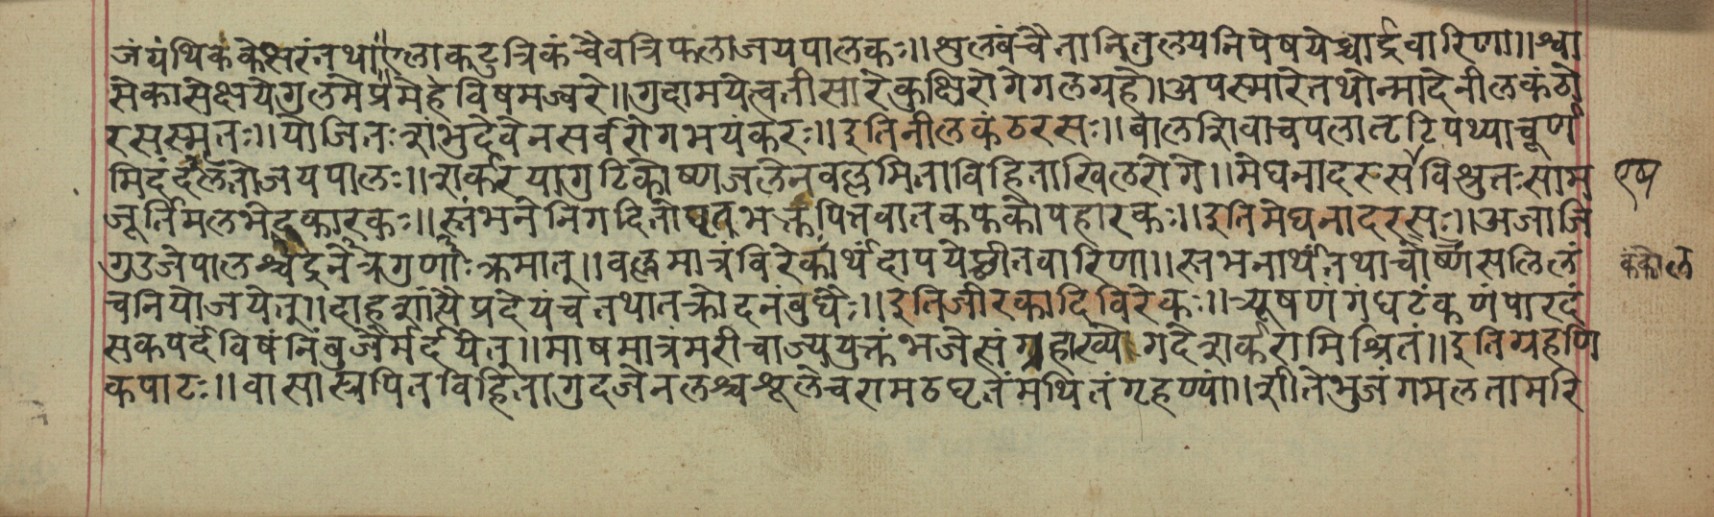 जंग्रंथिकंकेसरंतथा॥एलाकटुत्रिकंचैवत्रिफलाजयपालकः॥शुलबंचैतानितुलयनिपेषयेच्चार्द्रवारिणा॥श्वा
सेकासेक्षयेगुलमेप्रमेहेविषमज्वरे॥गुदामयेत्वतीसारेकुक्षिरोगेगलग्रहे॥अपस्मारेतथोन्मादेनीलकंठो
रसस्मृतः॥योजितःशंभुदेवेनसर्वरोगभयंकरः॥इतिनीलकंठरसः॥बोलशिवाचपलात्रुटिपथ्याचूर्ण
मिदंदलितोजयपालः॥शर्करयागुटिकोष्णजलेनवल्लमिताविहिताखिलरोगे॥मेघनादरसविश्रुतःसाम एष
जूर्तिमलभेदकारकः॥स्तंभनेनिगदितोघृतभक्तंपित्तवातकफकोपहारकः॥इतिमेघनादरसः॥अजाजि
गुडजेपालश्चंद्रनेत्रगुणाःक्रमात्॥वल्लमात्रंविरेकार्थंदापयेच्छीतवारिणा॥स्तंभनार्थंतथाचोष्णंसलिलं कंकोल
चनियोजयेत्॥दाहशांत्यैप्रदेयंचतथातक्रोदनंबुधैः॥इतिजीरकादिविरेकः॥त्र्यूषणंगंधटंकणंपारदं
सकपर्दविषंनिंबुजैर्मर्दयेत्॥माषमात्रंमरीचाज्ययुक्तंभजेत्संग्रहाख्येगदेशर्करामिश्रितं॥इतिग्रहणि
कपाटः॥वासास्रपित्तविहितागुदजेनलश्चश्रूलेचरामठघृतंमथितंगृहण्यां॥शीतेभुजंगमलतामरि